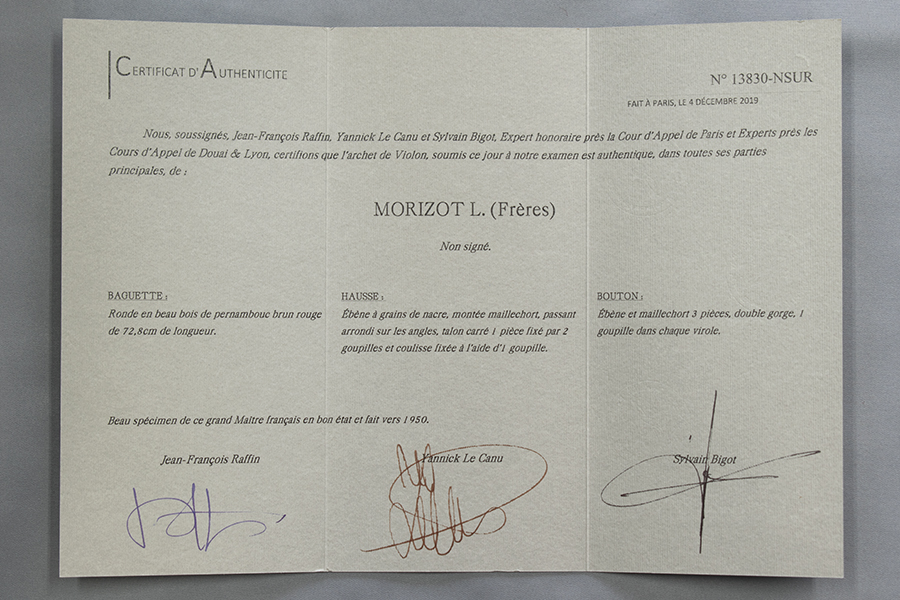 CERTIFICAT D'AUTHENTICITE
N° 13830-NSUR
FAIT À PARIS, LE 4 DÉCEMBRE 2019
Nous, soussignés, Jean-François Raffin, Yannick Le Canu et Sylvain Bigot, Expert honoraire près la Cour d'Appel de Paris et Experts près les
Cours d'Appel de Douai & Lyon, certifions que l'archet de Violon, soumis ce jour à notre examen est authentique, dans toutes ses parties
principales, de :
MORIZOT L. (Frères)
Non signé.
BAGUETTE :
Ronde en beau bois de pernambouc brun rouge
de 72,8cm de longueur.
HAUSSE :
Ébène à grains de nacre, montée maillechort, passant
arrondi sur les angles, talon carré 1 pièce fixé par 2
goupilles et coulisse fixée à l'aide d'1 goupille.
BOUTON :
Ébène et maillechort 3 pièces, double gorge, 1
goupille dans chaque virole.
Beau spécimen de ce grand Maître français en bon état et fait vers 1950.
Jean-François Raffin
Yannick Le Canu
Sylvain Bigot